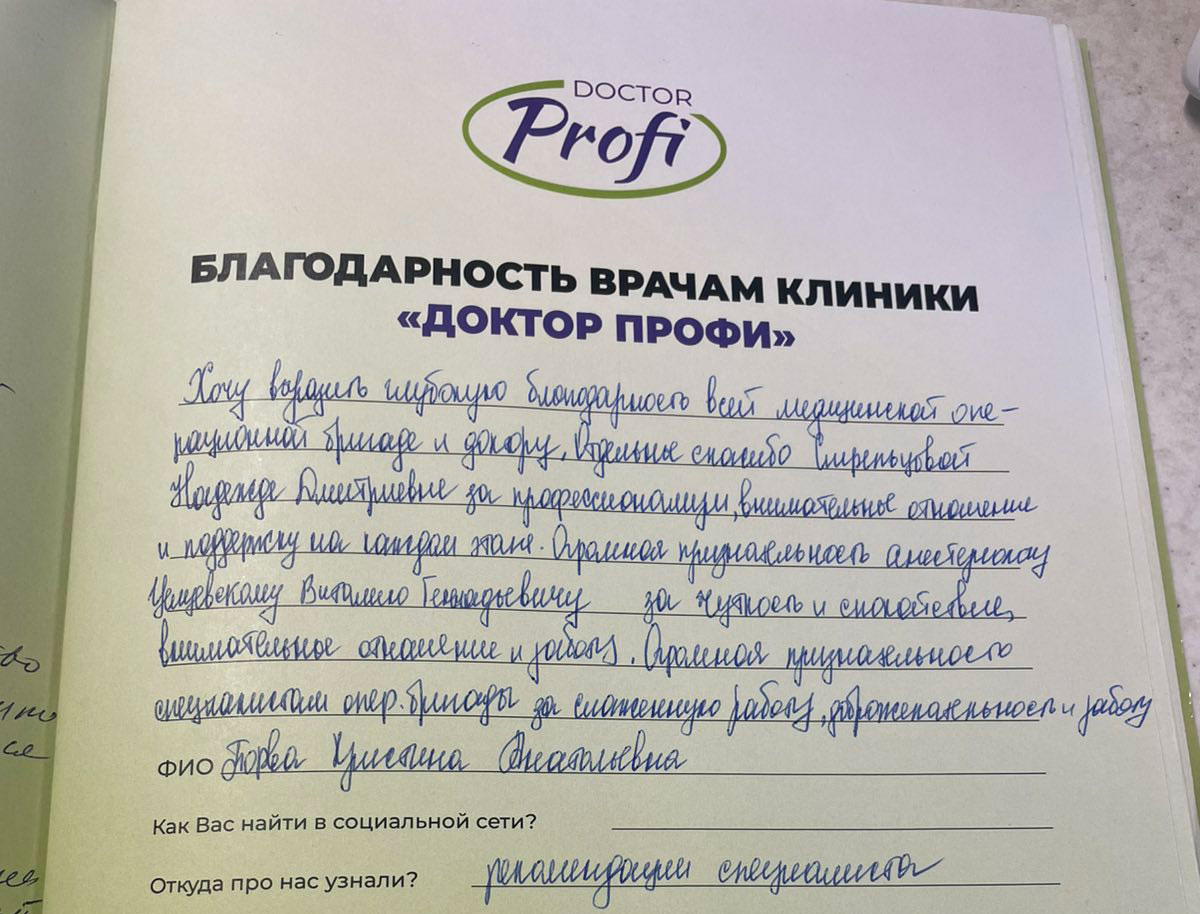 DOCTOR
Profi
БЛАГОДАРНОСТЬ ВРАЧАМ КЛИНИКИ
«ДОКТОР ПРОФИ»
Хочу выразить глубокую благодарность всей медицинской опе-
рационной бригаде и доктору. Отдельное спасибо
Надежде Дмитриевне за профессионализм, внимательные отношение
и поддержку на каждом этапе. Огромная признательность анестезиологу
Виталию Геннадьевичу за чуткость и спокойствие,
внимательное отношение и заботу. Огромная признательность
специалистам опер. бригады за слаженную работу, доброжелательность и заботу
ФИО Кристина Анатольевна
Как Вас найти в социальной сети?
Откуда про нас узнали? рекомендации специалиста